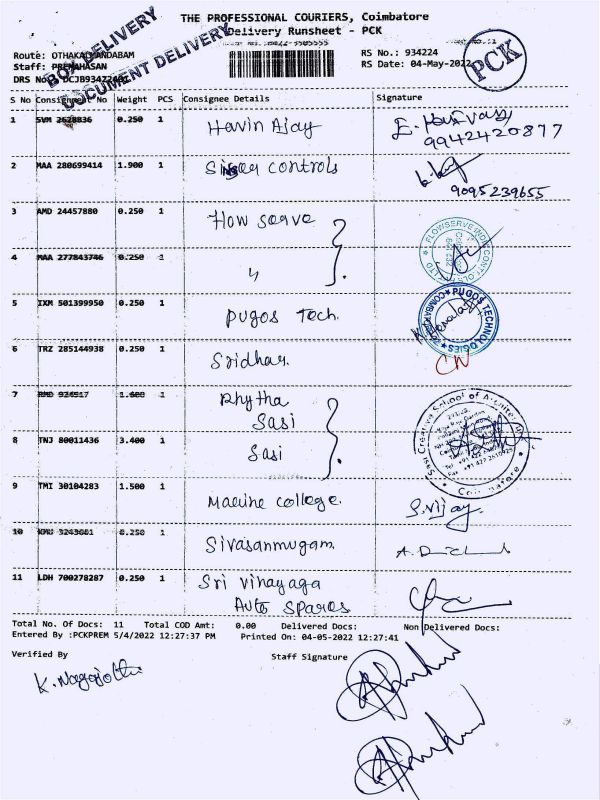 THE PROFESSIONAL COURIERS, Coimbatore
Delivery Runsheet - PCK
BOX DELIVERY
DOCUMENT DELIVERY
PCK
Route: OTHAKALMANDABAM
RS No.: 934224
Staff: PREMAHASAN
RS Date: 04-May-2022
DRS No.:
S No Consignment No Weight PCS Consignee Details Signature
1 SVM 2628836 0.250 1 Havin Ajay
9942420877
2 MAA 280699414 1.900 1 controls
9095239655
3 AMD 24457880 0.250 1 Flow serve
4 MAA 277843746 0.250 1 "
5 IXM 501399950 0.250 1 Pugos Tech.
PUGOS TECHNOLOGIES
COIMBATORE
6 TRZ 285144938 0.250 1 Sridhar.
CN
7 1.600 1 Rhytha
Sasi
8 TNJ 80011436 3.400 1 Sasi
Sasi Creative School of Architecture
Coimbatore
9 TMI 30104283 1.500 1 college.
S.vijay
10 0.250 1 Sivasanmugam.
11 LDH 700278287 0.250 1 Sri Vinayaga
Auto Spares
Total No. Of Docs: 11 Total COD Amt: 0.00 Delivered Docs: Non Delivered Docs:
Entered By :PCKPREM 5/4/2022 12:27:37 PM Printed On: 04-05-2022 12:27:41
Verified By Staff Signature